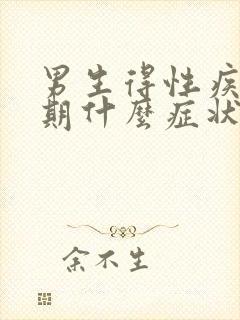 男生得性疾
期什麼症狀
余不生